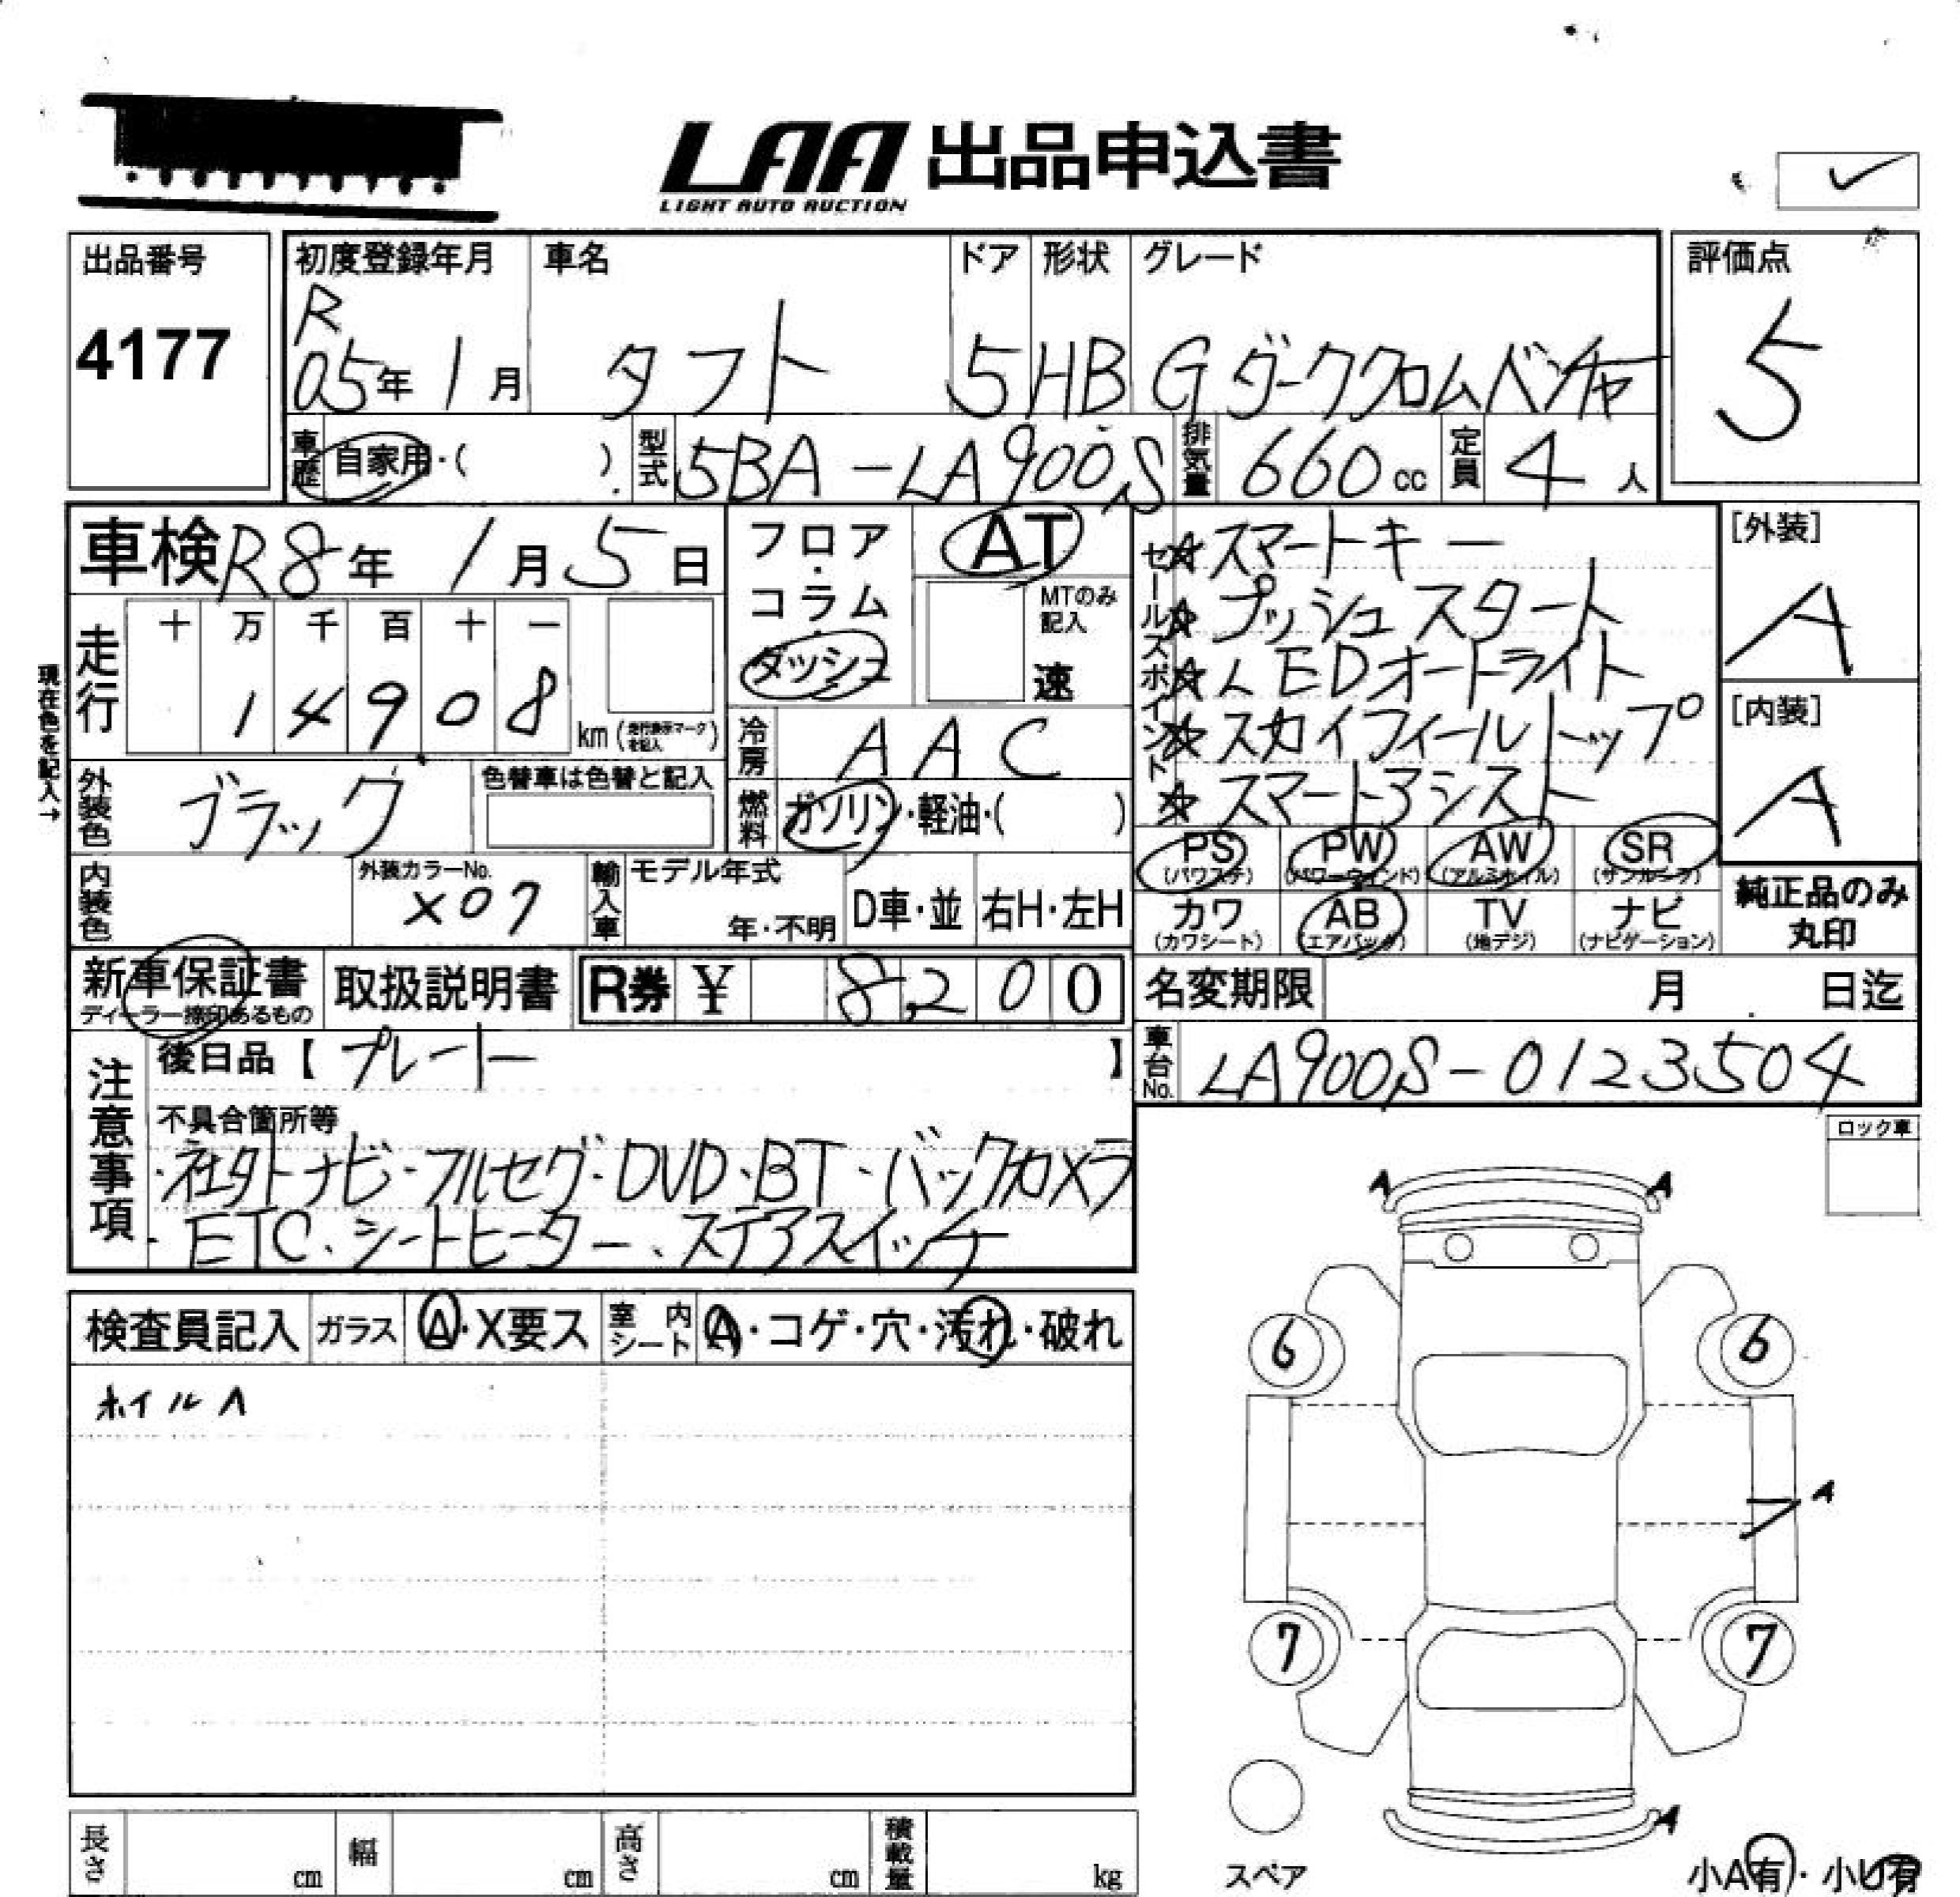 LAA 出品申込書
LIGHT AUTO AUCTION
✓
出品番号
4177
初度登録年月
R
05年 1月
車名
タフト
ドア
5
形状
HB
グレード
Gダーククロムベンチャー
評価点
5
車歴 自家用・( )
型式 5BA-LA900S
排気量 660cc
定員 4人
車検 R8年 1月 5日
走行
十 万 千 百 十 一
1 4 9 0 8 km(走行表示マークを記入)
現在色を記入→
フロア・コラム・ダッシュ
AT
MTのみ記入
速
冷房 AAC
燃料 ガソリン・軽油・( )
外装色 ブラック
色替車は色替と記入
内装色
外装カラーNo.
X07
輸入車
モデル年式
年・不明
D車・並
右H・左H
セールスポイント
☆スマートキー
☆プッシュスタート
☆LEDオートライト
☆スカイフィールトップ
☆スマートアシスト
[外装]
A
[内装]
A
PS (パワステ)
PW (パワーウィンド)
AW (アルミホイル)
SR (サンルーフ)
カワ (カワシート)
AB (エアバック)
TV (地デジ)
ナビ (ナビゲーション)
純正品のみ丸印
新車保証書
ディーラー捺印あるもの
取扱説明書
R券 ¥ 8,200
名変期限 月 日迄
車台No. LA900S-0123504
注意事項
後日品【プレート】
不具合箇所等
・社外ナビ・フルセグ・DVD・BT・バックカメラ
・ETC、シートヒーター、ステアスイッチ
ロック車
検査員記入
ガラス A・X要ス
室内シート A・コゲ・穴・汚れ・破れ
ホイルA
A A
6 6
A
7 7
A
スペア
小A有・小U有
長さ cm
幅 cm
高さ cm
積載量 kg